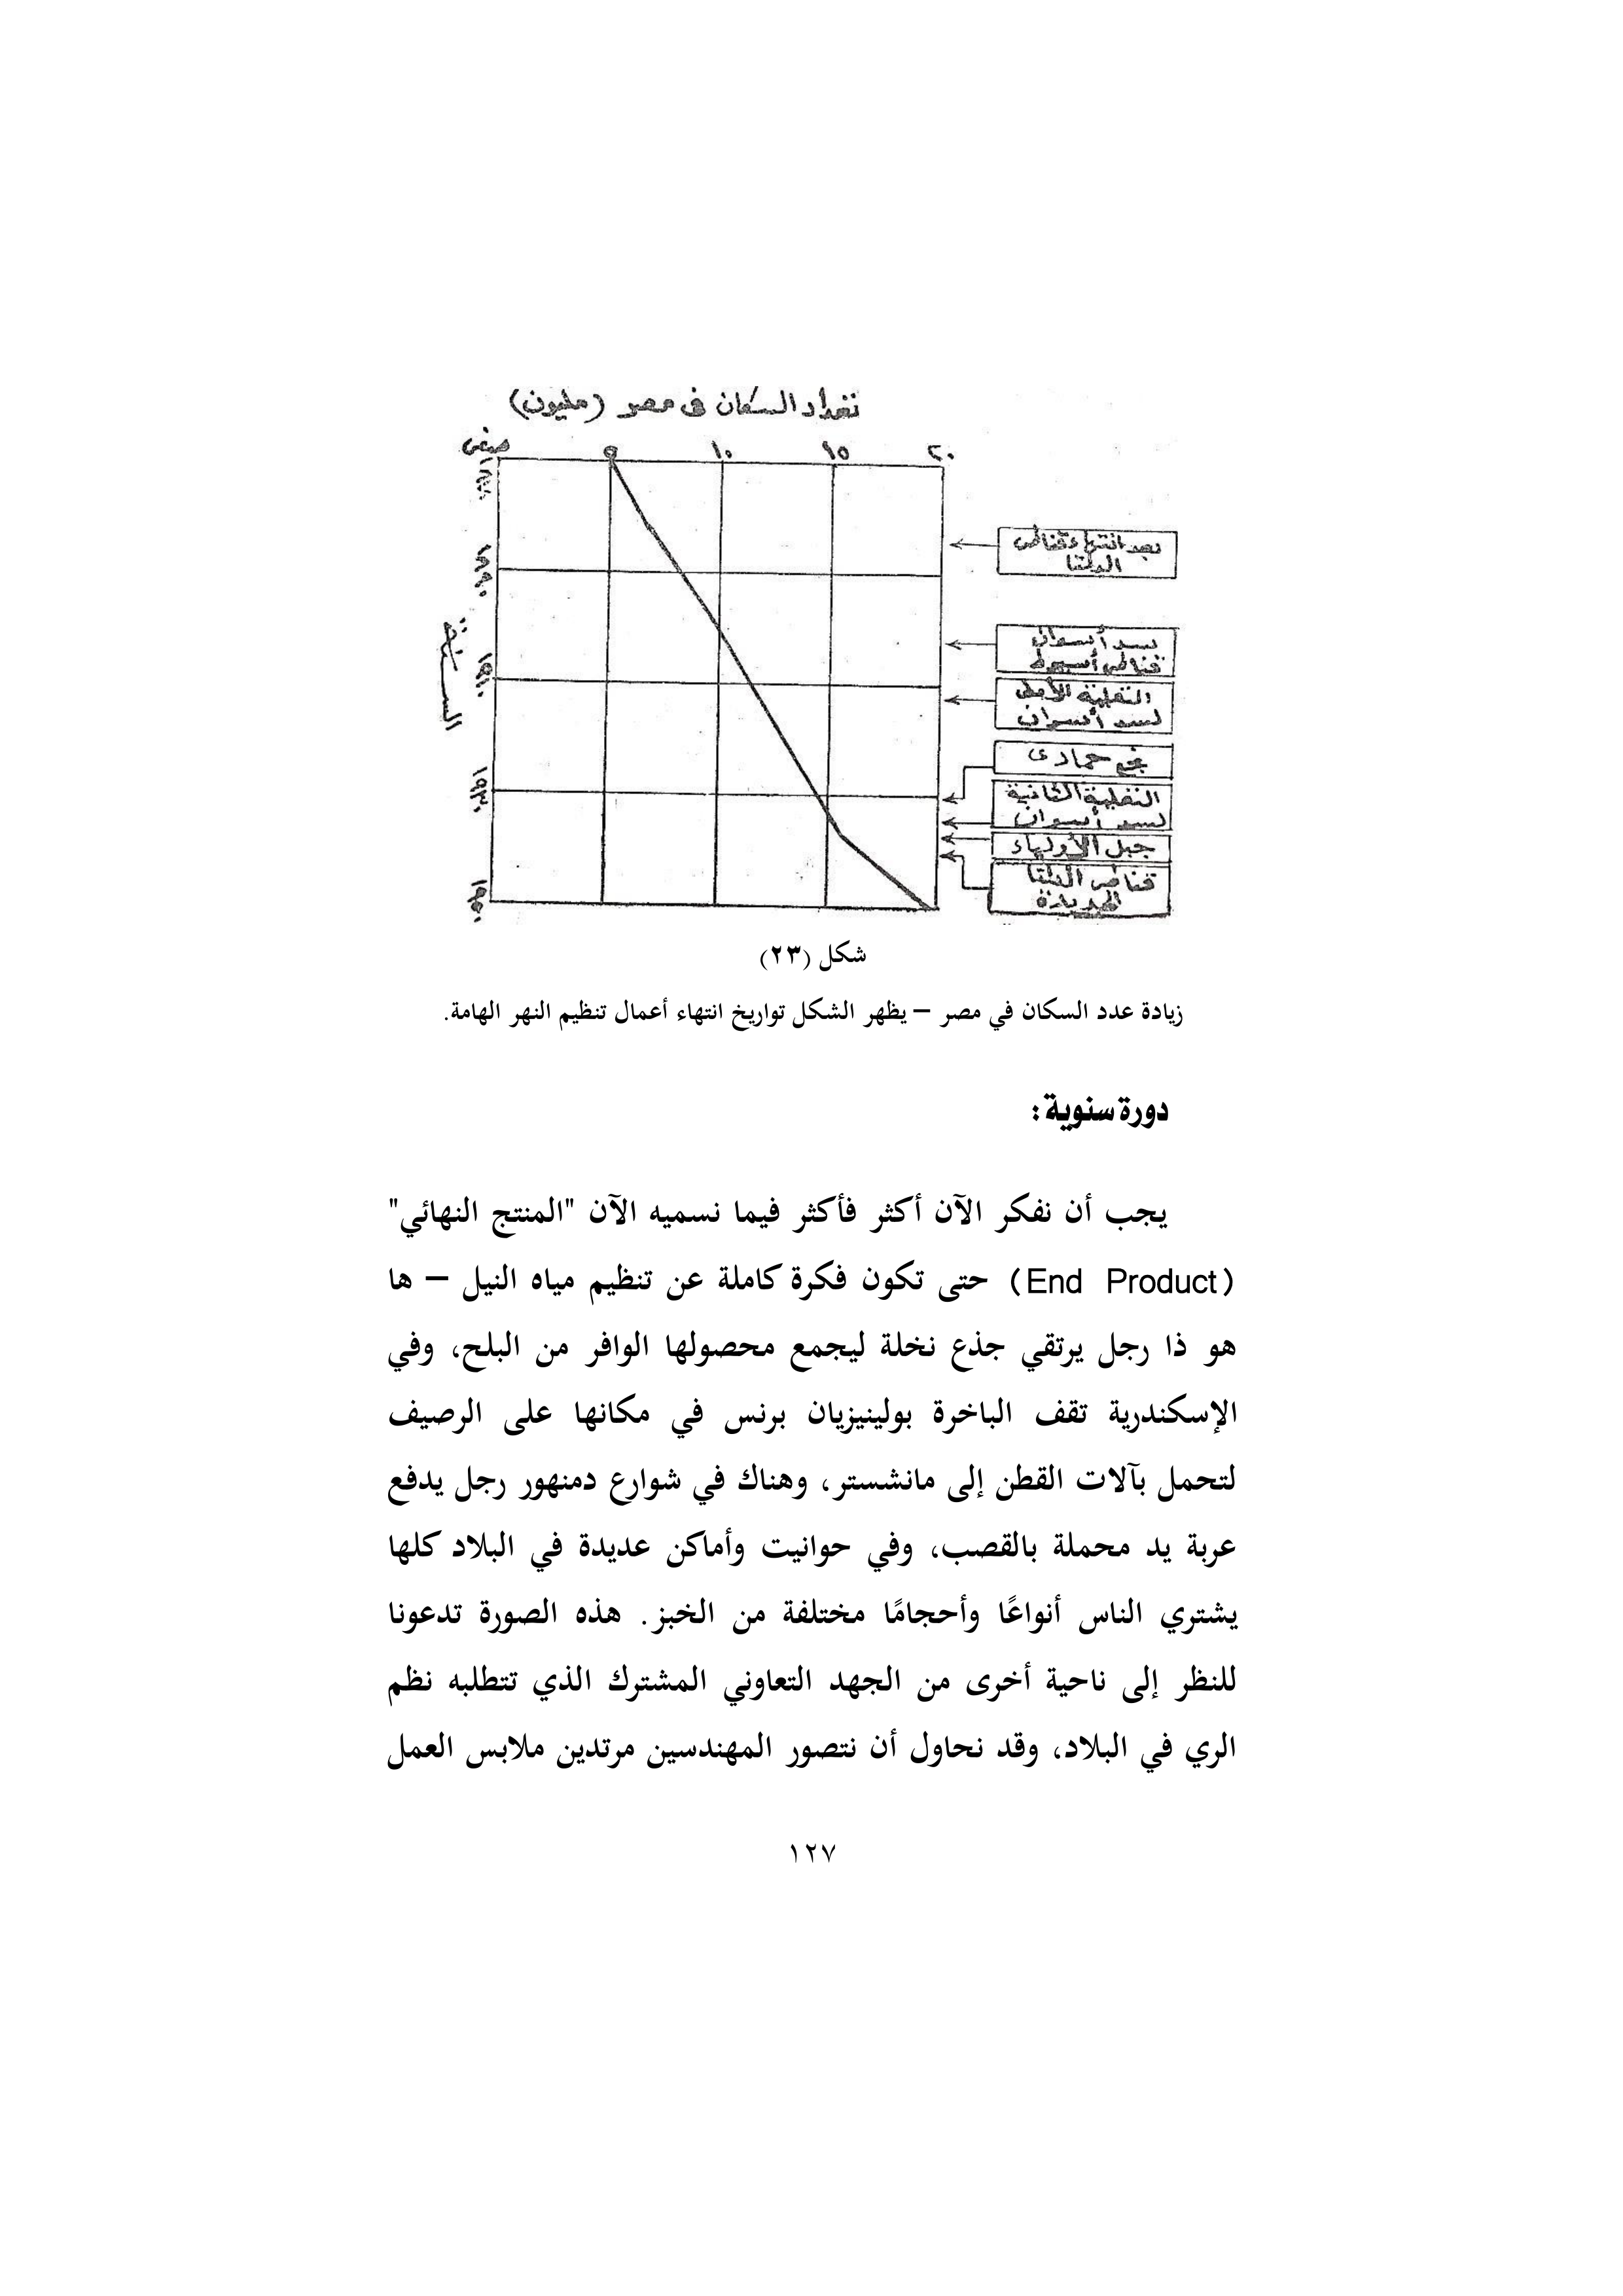 تعداد السكان فى مصر (مليون)
صفر ٥ ١٠ ١٥ ٢٠
١٨٧٠
١٨٩٠
١٩١٠
١٩٣٠
١٩٥٠
السنة
بعد انتهاء قناطر
الدلتا
سد أسوان
قناطر أسيوط
التعلية الأولى
لسد أسوان
نجع حمادى
التعلية الثانية
لسد أسوان
جبل الأولياء
قناطر الدلتا
الجديدة
شكل (٢٣)
زيادة عدد السكان في مصر – يظهر الشكل تواريخ انتهاء أعمال تنظيم النهر الهامة.
دورة سنوية:
يجب أن نفكر الآن أكثر فأكثر فيما نسميه الآن "المنتج النهائي"
(End Product) حتى تكون فكرة كاملة عن تنظيم مياه النيل – ها
هو ذا رجل يرتقي جذع نخلة ليجمع محصولها الوافر من البلح، وفي
الإسكندرية تقف الباخرة بولينيزيان برنس في مكانها على الرصيف
لتحمل بآلات القطن إلى مانشستر، وهناك في شوارع دمنهور رجل يدفع
عربة يد محملة بالقصب، وفي حوانيت وأماكن عديدة في البلاد كلها
يشتري الناس أنواعًا وأحجامًا مختلفة من الخبز. هذه الصورة تدعونا
للنظر إلى ناحية أخرى من الجهد التعاوني المشترك الذي تتطلبه نظم
الري في البلاد، وقد نحاول أن نتصور المهندسين مرتدين ملابس العمل
١٢٧